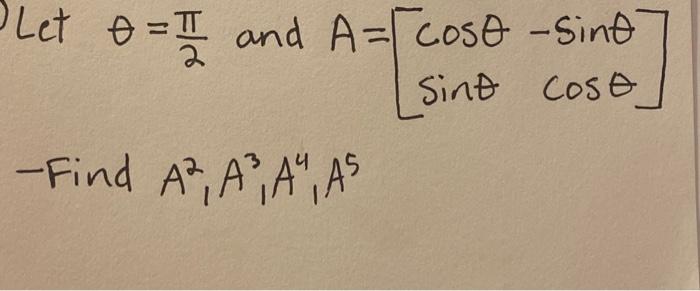 Let θ = π/2 and A = [cosθ -sinθ
sinθ cosθ]
-Find A², A³, A⁴, A⁵